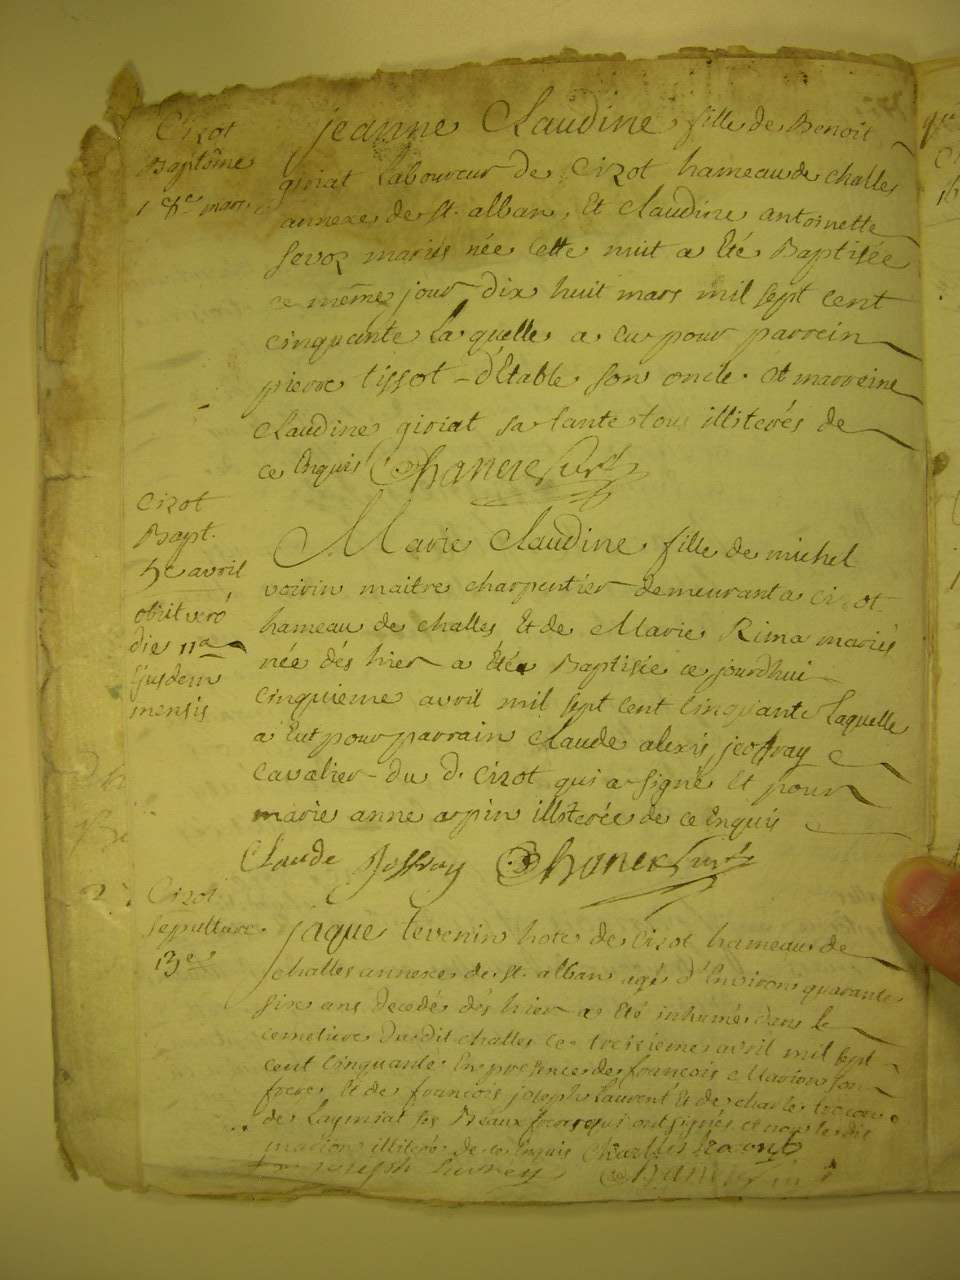 Cizot
Baptême
18e mars
jeanne Claudine fille de Benoit
giriat Laboureur de Cizot hameau de challes
annexe de st. alban, Et claudine antoinette
sevoz mariés née cette nuit a Eté Baptisée
ce même jour dix huit mars mil sept cent
cinquante Laquelle a eu pour parrein
pierre tissot d'Etable son oncle Et marreine
claudine giriat sa tante tous illiterés de
ce Enquis
Cizot
Bapt.
5e avril
obiit vero
die 11a
Ejusdem
mensis
Marie Claudine fille de michel
voirin maitre charpentier demeurant a cizot
hameau de challes Et de Marie Rima mariés
née dés hier a Eté Baptisée ce jourdhui
cinquieme avril mil sept cent Cinquante Laquelle
a Eut pour parrain claude alexis jeoffray
cavalier du d. cizot qui a signé Et pour
marie anne arpin illiterée de ce Enquis
Claude Joffray
Cizot
sepulture
13e
jaque tevenin hote de Cizot hameau de
challes annexe de st. alban agé d'Environ quarante
six ans decedé dés hier a Eté inhumé dans le
cemetiere du dit challes ce treisieme avril mil sept
cent Cinquante En presence de francois Marion son
frere Et de francois joseph Laurent Et de charle
de ses Beaux freres qui ont signés Et non le dit
marion illiteré de ce Enquis Charles
joseph